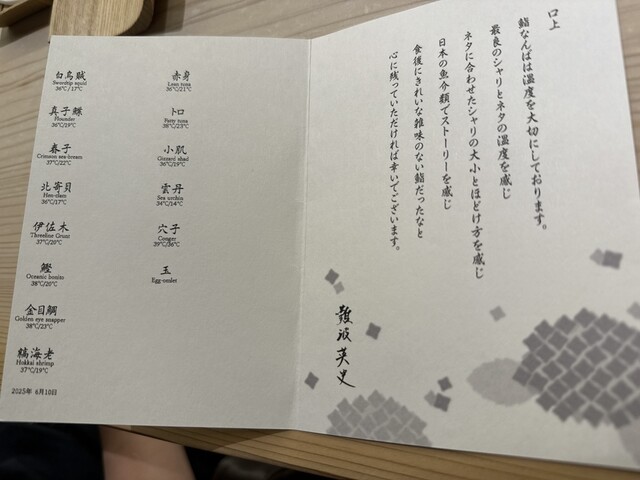 白烏賊
Swordtip squid
36℃ / 17℃
真子鰈
Flounder
36℃/19℃
春子
Crimson sea-bream
37℃/22℃
北寄貝
Hen-clam
36℃/17℃
伊佐木
Threeline Grunt
37℃/20℃
鰹
Oceanic bonito
38℃/20℃
金目鯛
Golden eye snapper
38℃/23℃
縞海老
Hokkai shrimp
37℃/19℃
2025年 6月10日
赤身
Lean tuna
36℃/21℃
トロ
Fatty tuna
38℃/23℃
小肌
Gizzard shad
36℃/19℃
雲丹
Sea urchin
34℃/14℃
穴子
Conger
39℃/36℃
玉
Egg-omlet
口上
鮨なんばは温度を大切にしております。
最良のシャリとネタの温度を感じ
ネタに合わせたシャリの大小とほどけ方を感じ
日本の魚介類でストーリーを感じ
食後にきれいな雑味のない鮨だったなと
心に残っていただければ幸いでございます。
難波英史